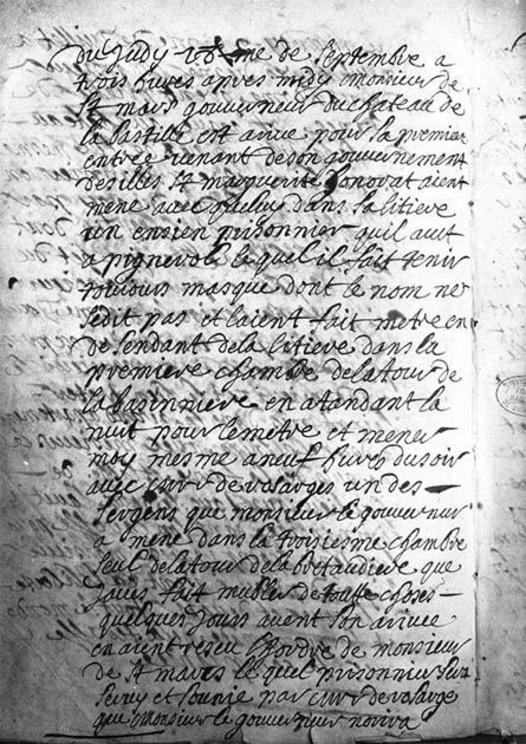 du Judy 18me de Septembre a
trois hures apres midy monsieur de
St mars gouverneur du chateau de
la bastille est arive pour sa premier
entree venant de son gouvernement
des illes St marguerite honorat aient
mene avec queluy dans sa litiere
un ensien prisonnier quil avet
a pignerol lequel il fait tenir
toujours masque dont le nom ne
se dit pas et laient fait metre en
de sendant de la litiere dans la
premiere chambre de la tour de
la basinniere en atandant la
nuit pour le metre et mener
moy mesme a neuf hures du soir
avec mr de rosarges un des
sergens que monsieur le gouverneur
a mene dans la troisiesme chambre
seul de la tour de la bretaudiere que
javes fait mubler de toutte choses
quelques jours avent son arivee
en aient reseu lhordre de monsieur
de St mars lequel prisonnier sera
servy et sounie par mr de rosarge
que monsieur le gouverneur norira